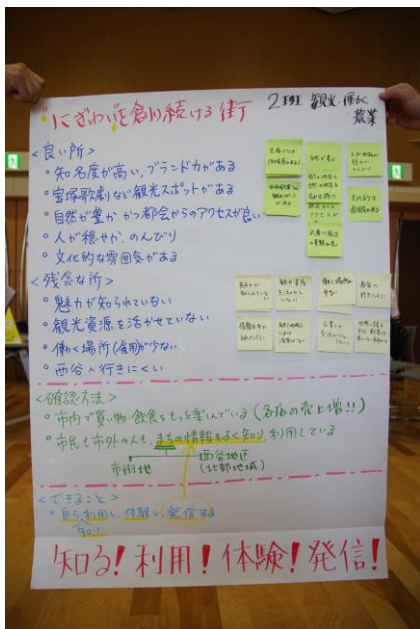 "にぎわい"を創り続ける街
2班 観光・働く
農業
<良い所>
・知名度が高い、ブランド力がある
・宝塚歌劇など観光スポットがある
・自然が豊かかつ都会からのアクセスが良い
・人が穏やか、のんびり
・文化的な雰囲気がある
<残念な所>
・魅力が知られていない
・観光資源を活かせていない
・働く場所(雇用)が少ない
・西谷へ行きにくい
<確認方法>
・市内で買い物・飲食をもっと楽しんでいる(各店の売上増!!)
・市民も市外の人も、まちの情報をよく知り利用している
市街地
西谷地区
(北部地域)
<できること>
・自ら利用し体験し発信する
知り
知る!利用!体験!発信!